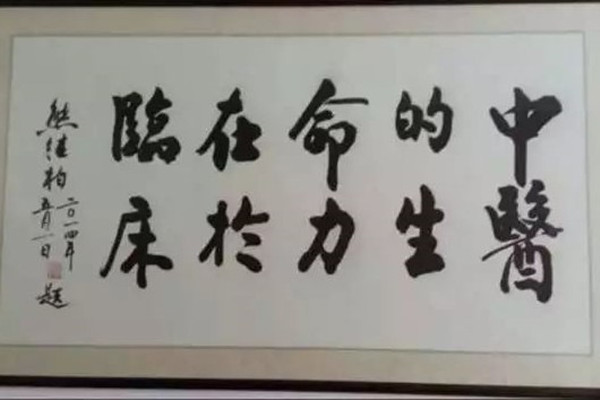 中醫
的生
命力
在於
臨床
熊继柏
二〇一四年
五月一日
题